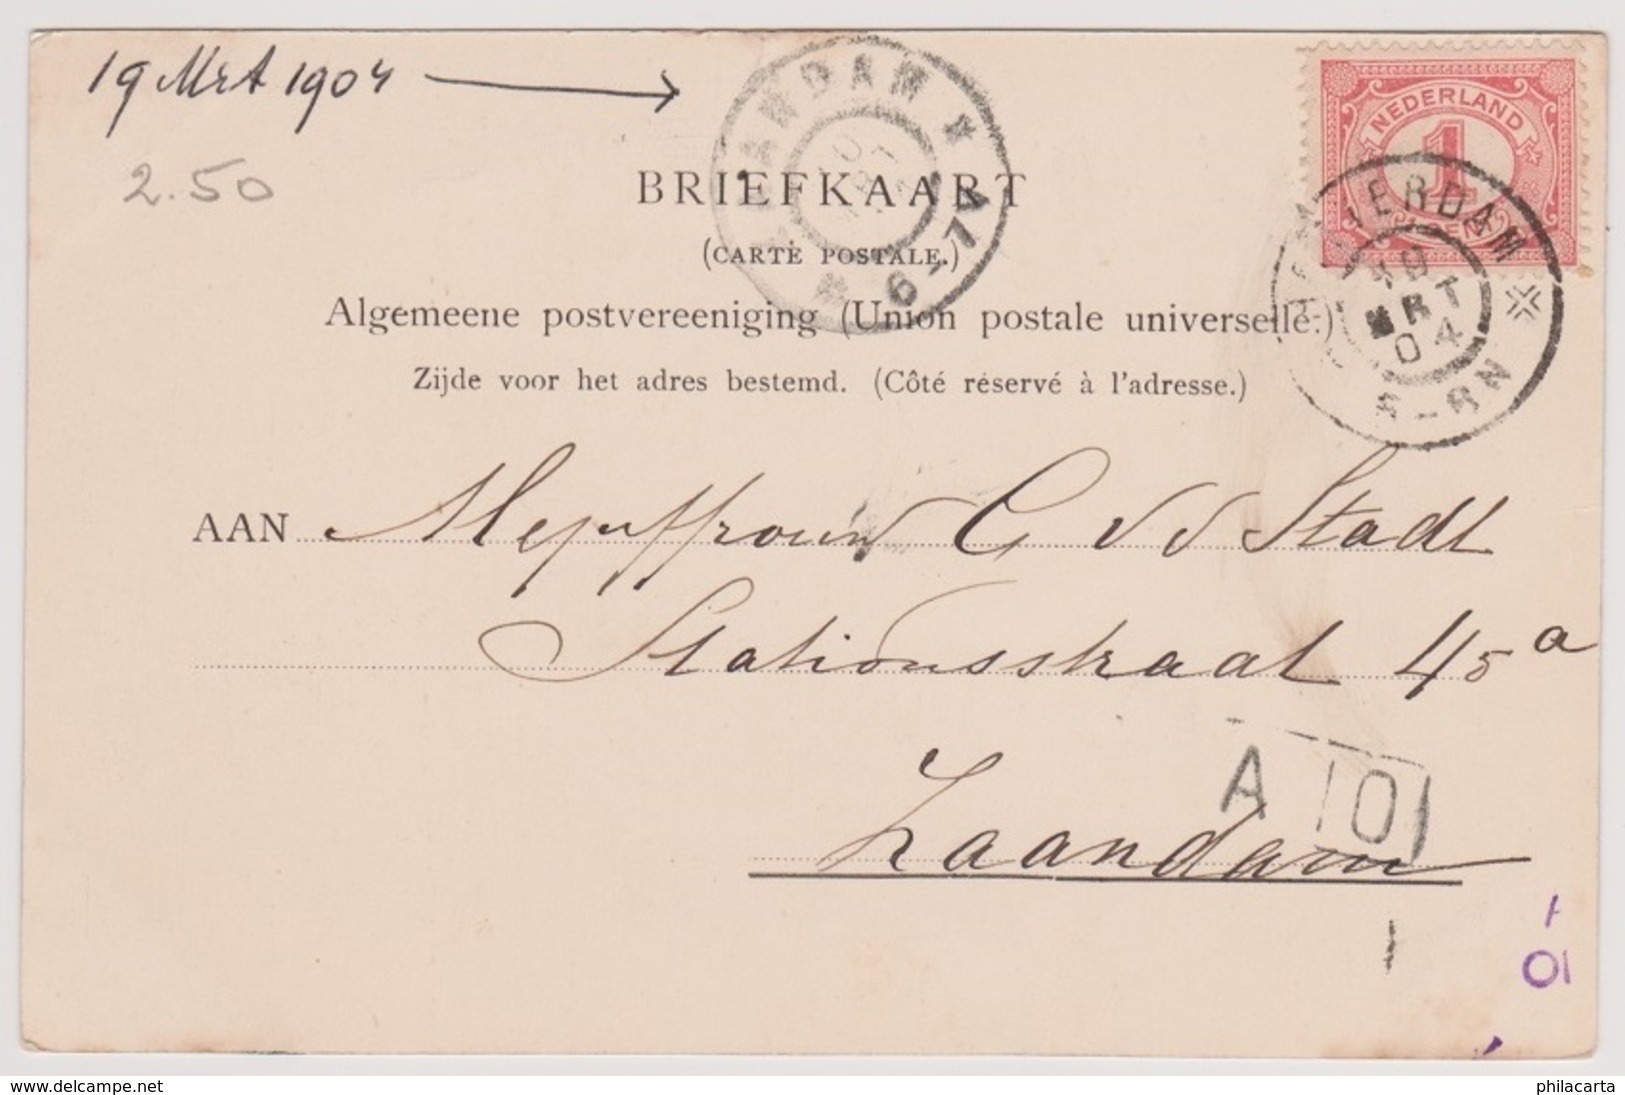 19 Mrt 1904
2.50
NEDERLAND
1
CENT
AMSTERDAM
19
MRT
04
8-8N
ZAANDAM
6-7V
BRIEFKAART
(CARTE POSTALE.)
Algemeene postvereeniging (Union postale universelle.)
Zijde voor het adres bestemd. (Côté réservé à l'adresse.)
AAN Mejuffrouw C v d Stadt
Stationsstraat 45a
A 10
Zaandam
1
10
www.delcampe.net
philacarta